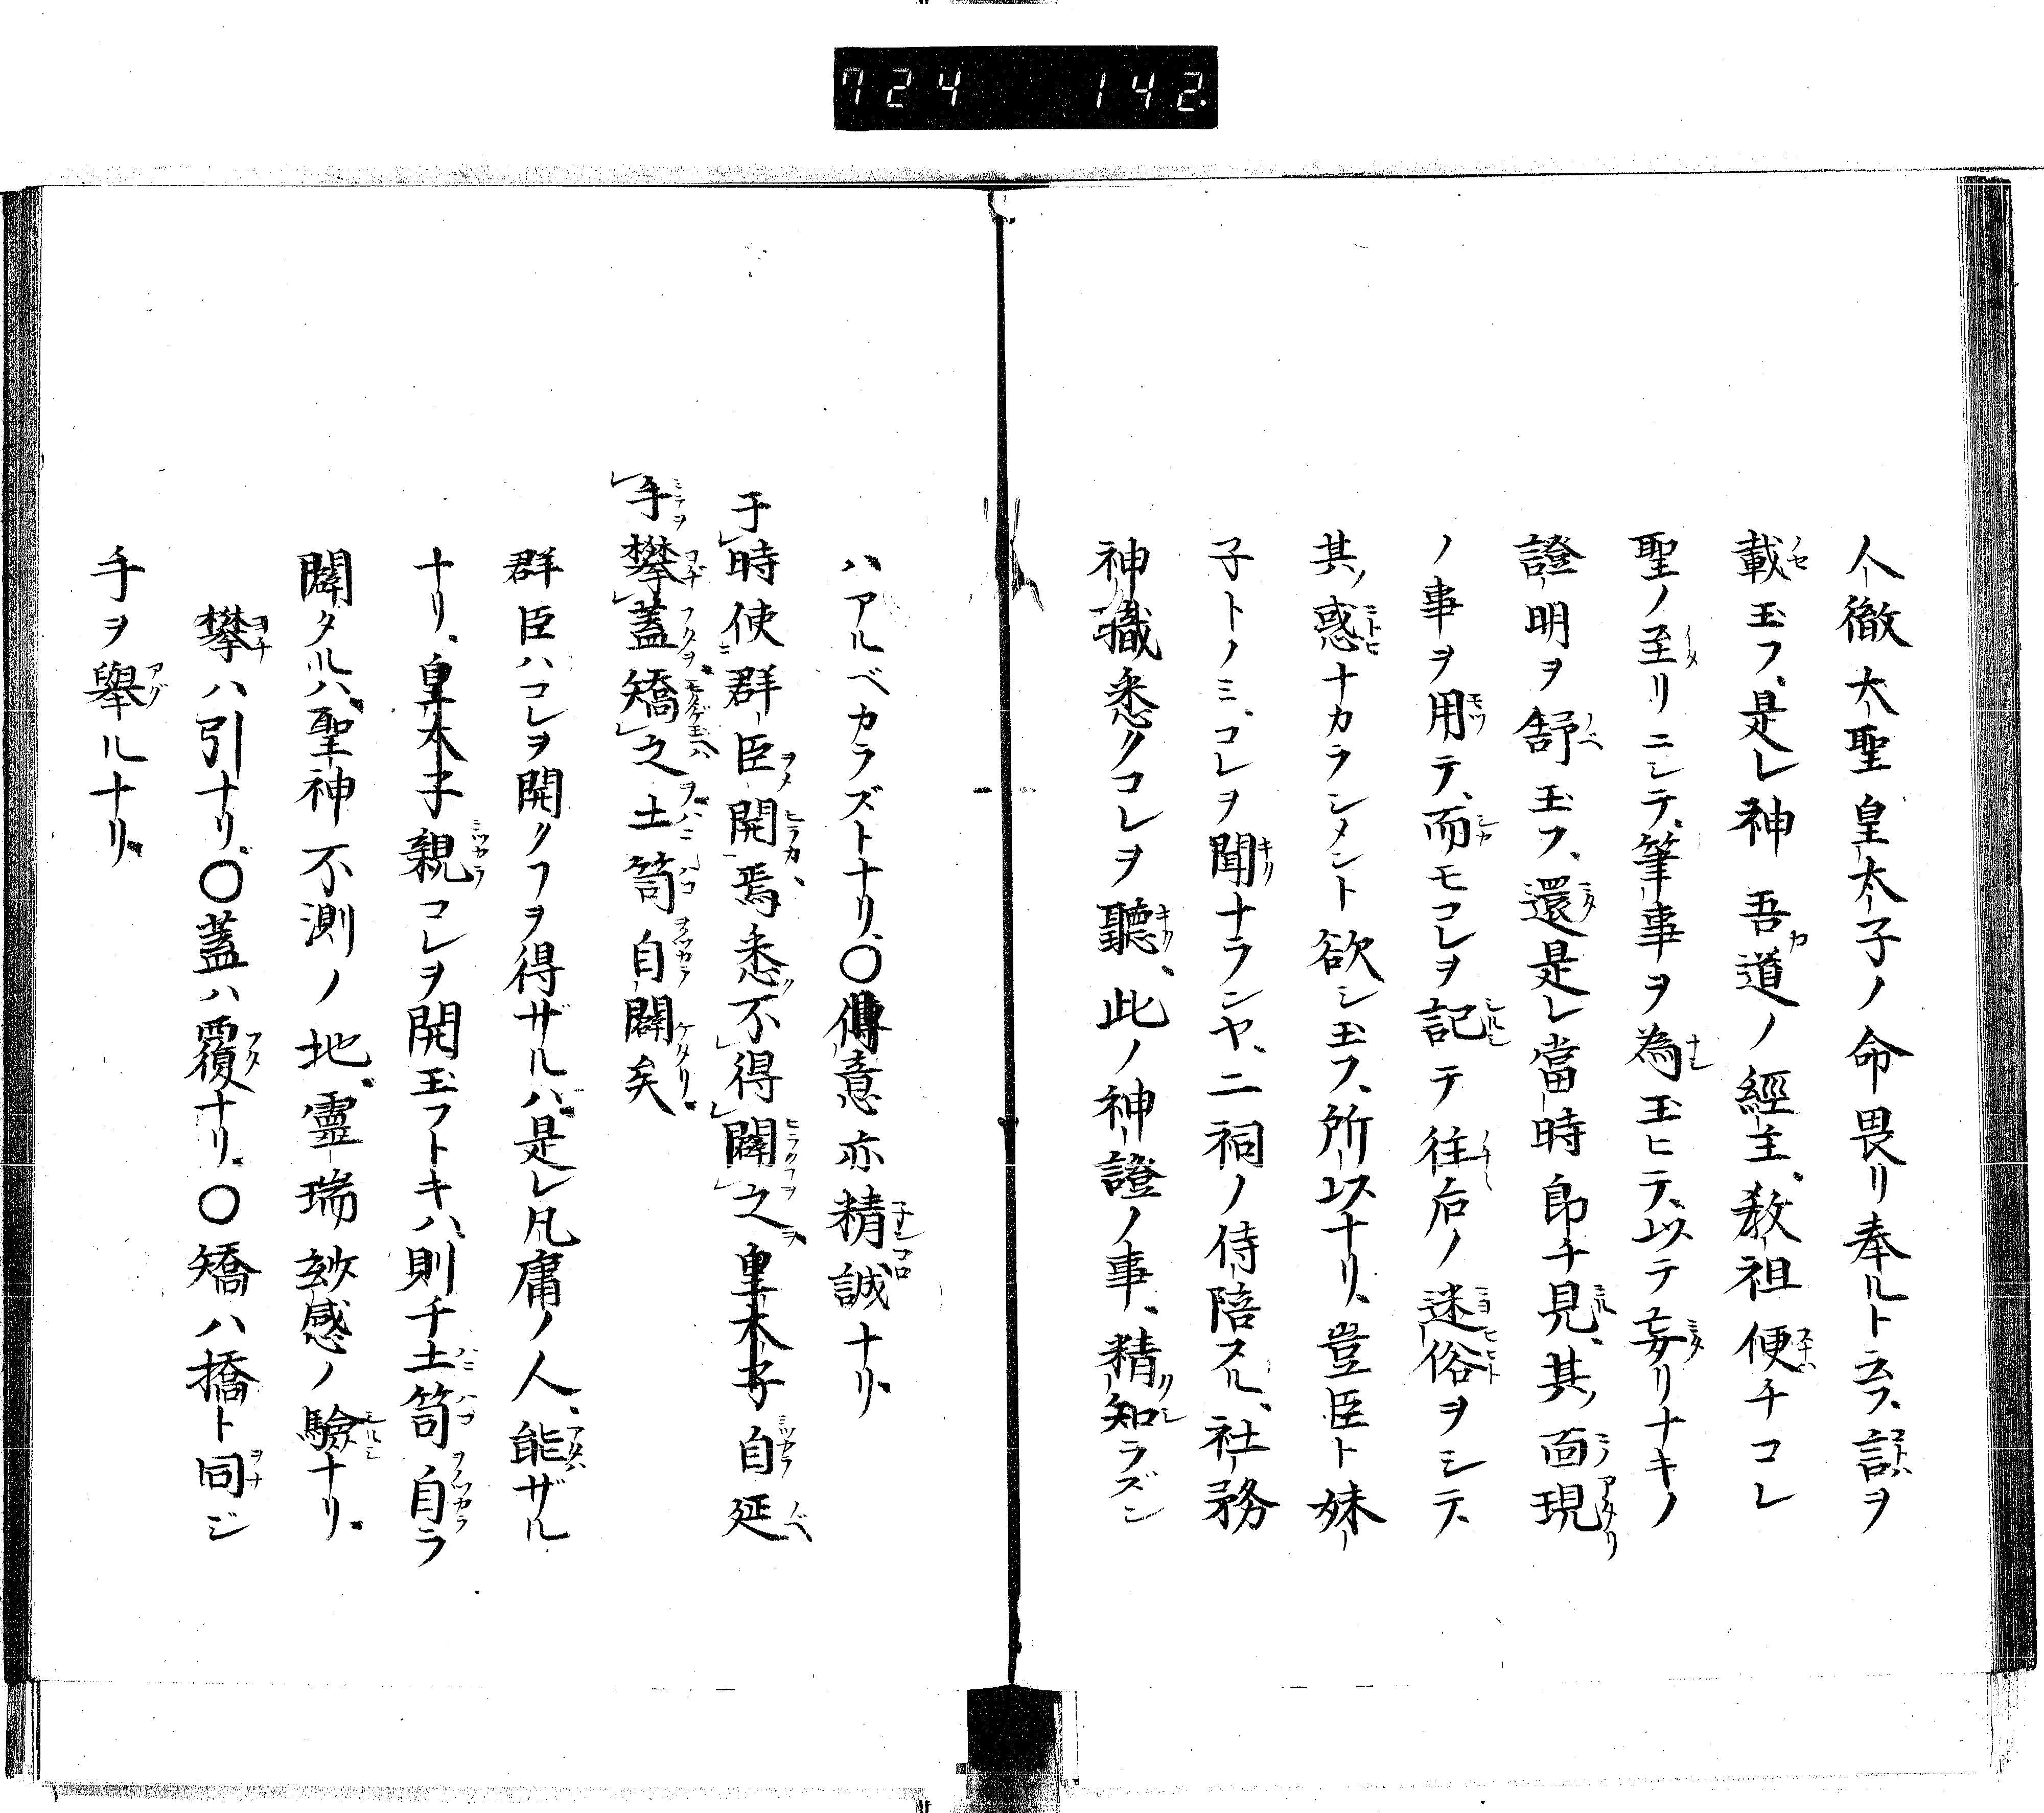 724 142.
人徹太聖皇太子ノ命畏リ奉ルト云フ、語ヲ
載玉フ、是レ神吾道ノ經主、教祖便チコレ
聖ノ至リニシテ、筆事ヲ為玉ヒテ、以テ妄リナキノ
證明ヲ舒玉フ、還是レ當時即チ見、其ノ面現
ノ事ヲ用テ、而モコレヲ記テ往后ノ迷俗ヲシテ、
其ノ惑ナカラシメント欲シ玉フ、所以ナリ、豈臣ト妹
子トノミ、コレヲ聞ナランヤ、二祠ノ侍陪スル、社務
神職悉クコレヲ聽、此ノ神證ノ事、精知ラズン
ハアルベカラズトナリ、○傳意亦精誠ナリ、
于時使群臣開焉悉不得闢之皇太子自延
手攀蓋矯之土笥自闢矣
群臣ハコレヲ開クフヲ得ザルハ、是レ凡庸ノ人、能ザル
ナリ、皇太子親コレヲ開玉フトキハ、則チ土笥自ラ
闢タルハ、聖神不測ノ地、靈瑞妙感ノ驗ナリ、
攀ハ引ナリ、○蓋ハ覆ナリ、○矯ハ撟ト同ジ
手ヲ擧ルナリ、